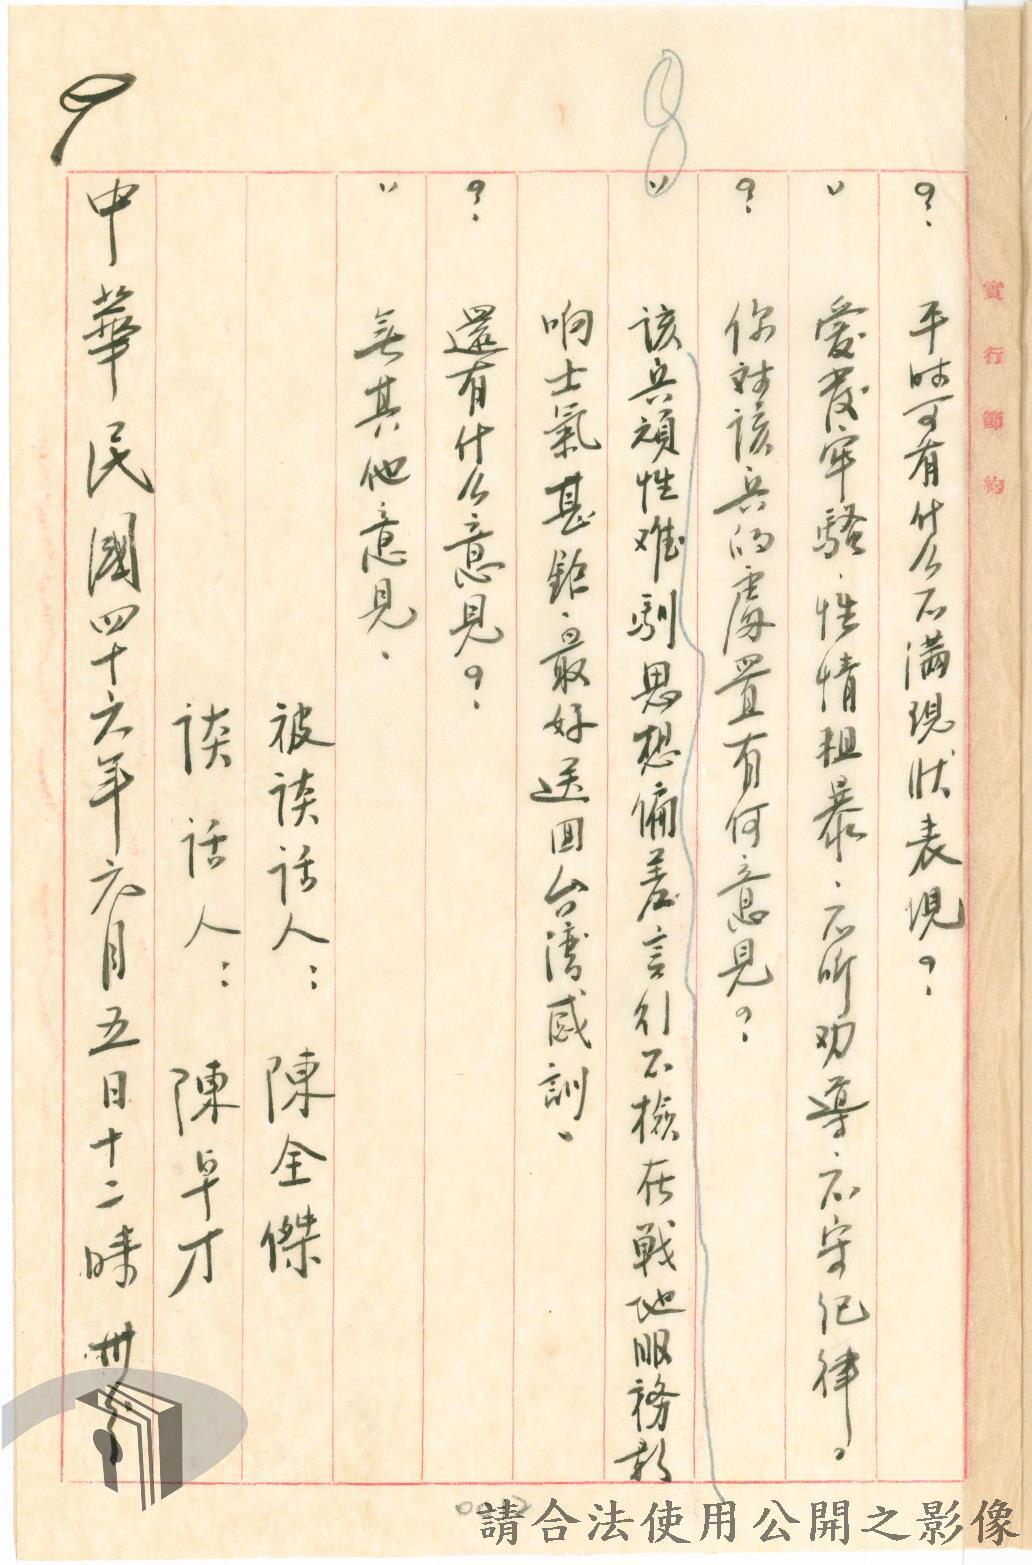 實行節約
？ 平時可有什么不滿現狀表現？
〃 愛發牢騷、性情粗暴、不听劝導、不守纪律。
？ 你對該兵的處置有何意見？
〃 該兵頑性难馴思想偏差言行不檢在戰地服務影
响士氣甚鉅、最好送回台灣感訓。
？ 還有什么意見？
〃 無其他意見、
被談話人： 陳全傑
談話人： 陳卓才
中華民國四十六年六月五日十二時卅分
8
9
請合法使用公開之影像